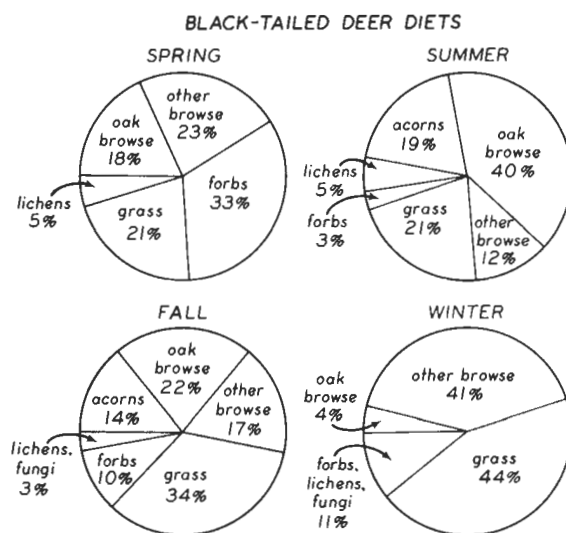 BLACK-TAILED DEER DIETS
SPRING
other
browse
23%
oak
browse
18%
forbs
33%
lichens
5%
grass
21%
SUMMER
acorns
19%
oak
browse
40%
lichens
5%
forbs
3%
grass
21%
other
browse
12%
FALL
oak
browse
22%
other
browse
17%
acorns
14%
lichens,
fungi
3%
forbs
10%
grass
34%
WINTER
other browse
41%
oak
browse
4%
forbs,
lichens,
fungi
11%
grass
44%